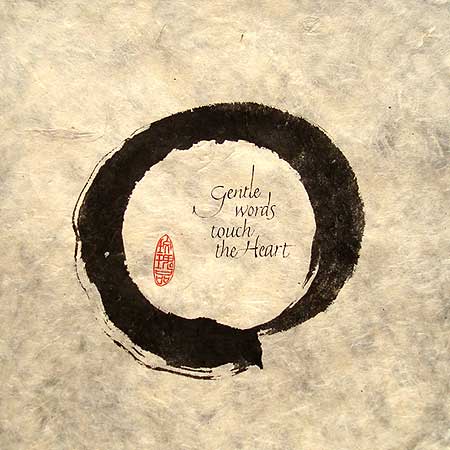 Gentle
words
touch
the Heart